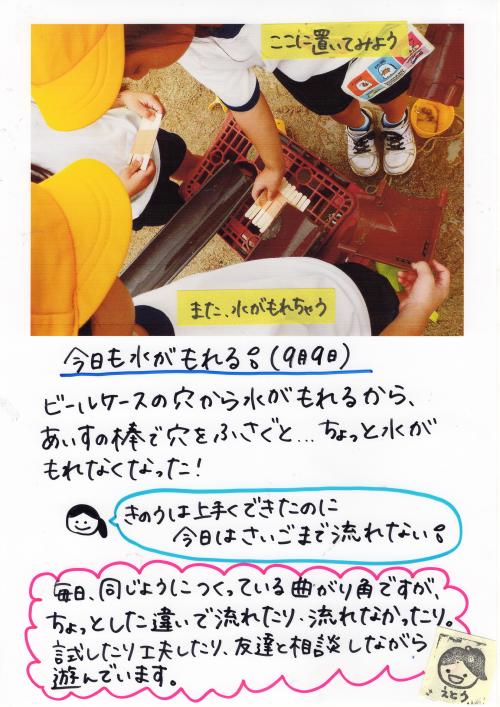 ここに置いてみよう
また、水がもれちゃう
今日も水がもれる!(9月9日)
ビールケースの穴から水がもれるから、
あいすの棒で穴をふさぐと...ちょっと水が
もれなくなった!
きのうは上手くできたのに
今日はさいごまで流れない!
毎日、同じようにつくっている曲がり角ですが、
ちょっとした違いで流れたり・流れなかったり。
試したり工夫したり、友達と相談しながら
遊んでいます。
えとう